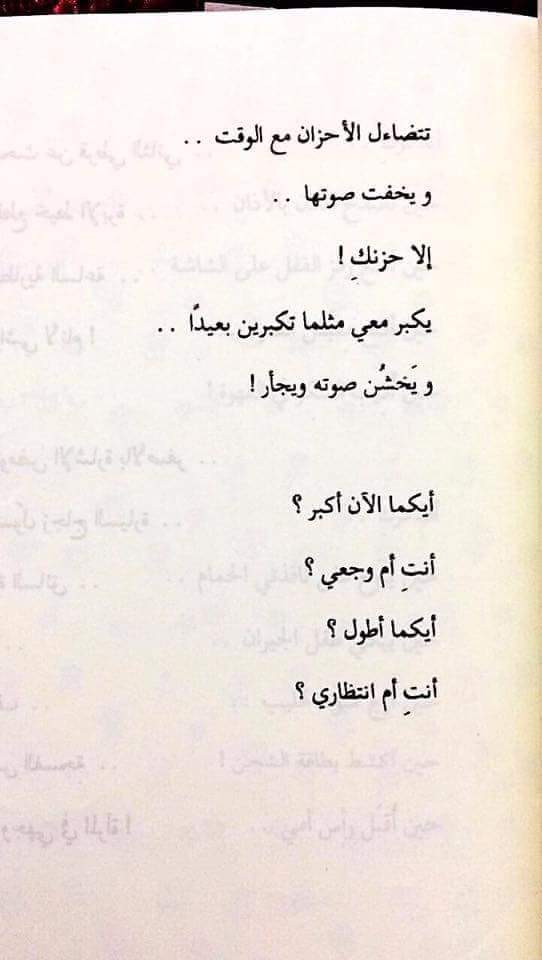 تتضاءل الأحزان مع الوقت ..
و يخفت صوتها ..
إلا حزنكِ !
يكبر معي مثلما تكبرين بعيدًا ..
و يَخشُن صوته ويجأر !
أيكما الآن أكبر ؟
أنتِ أم وجعي ؟
أيكما أطول ؟
أنتِ أم انتظاري ؟